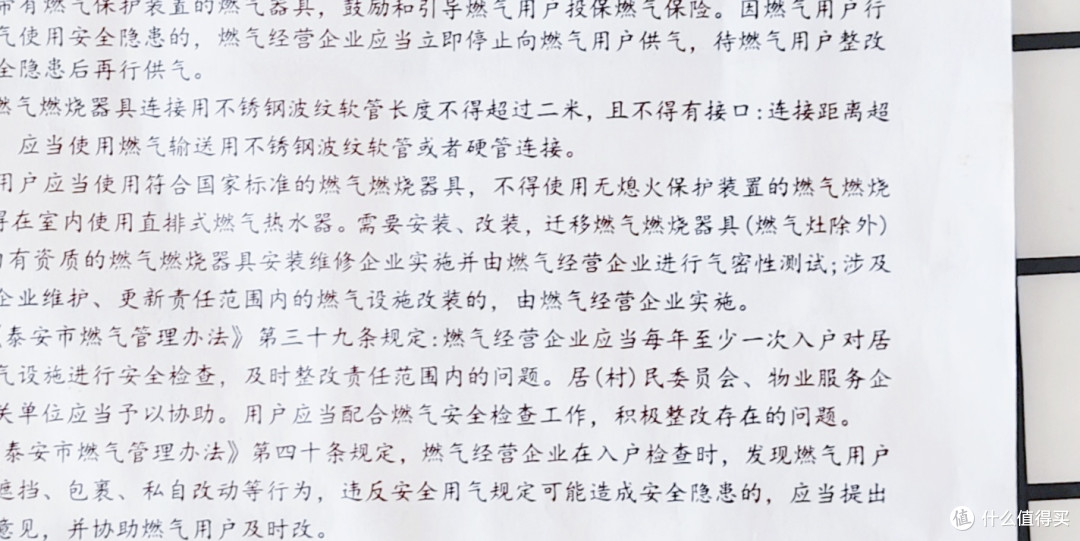 带有燃气保护装置的燃气器具，鼓励和引导燃气用户投保燃气保险。因燃气用户行
气使用安全隐患的，燃气经营企业应当立即停止向燃气用户供气，待燃气用户整改
全隐患后再行供气。
燃气燃烧器具连接用不锈钢波纹软管长度不得超过二米，且不得有接口:连接距离超
应当使用燃气输送用不锈钢波纹软管或者硬管连接。
用户应当使用符合国家标准的燃气燃烧器具，不得使用无熄火保护装置的燃气燃烧
得在室内使用直排式燃气热水器。需要安装、改装，迁移燃气燃烧器具(燃气灶除外)
有资质的燃气燃烧器具安装维修企业实施并由燃气经营企业进行气密性测试;涉及
企业维护、更新责任范围内的燃气设施改装的，由燃气经营企业实施。
《泰安市燃气管理办法》第三十九条规定:燃气经营企业应当每年至少一次入户对居
气设施进行安全检查，及时整改责任范围内的问题。居(村)民委员会、物业服务企
关单位应当予以协助。用户应当配合燃气安全检查工作，积极整改存在的问题。
《泰安市燃气管理办法》第四十条规定，燃气经营企业在入户检查时，发现燃气用户
遮挡、包裹、私自改动等行为，违反安全用气规定可能造成安全隐患的，应当提出
意见，并协助燃气用户及时改。
值 什么值得买